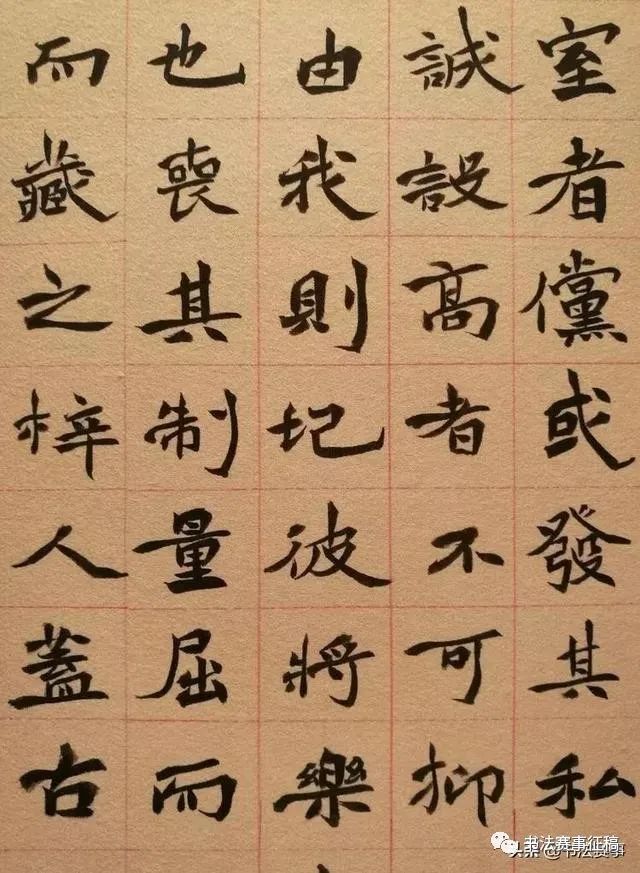 室者儻或發其私
誠設高者不可抑
由我則圮彼將樂
也喪其制量屈而
而藏之梓人蓋古
书法赛事征稿
头条@书法赛事